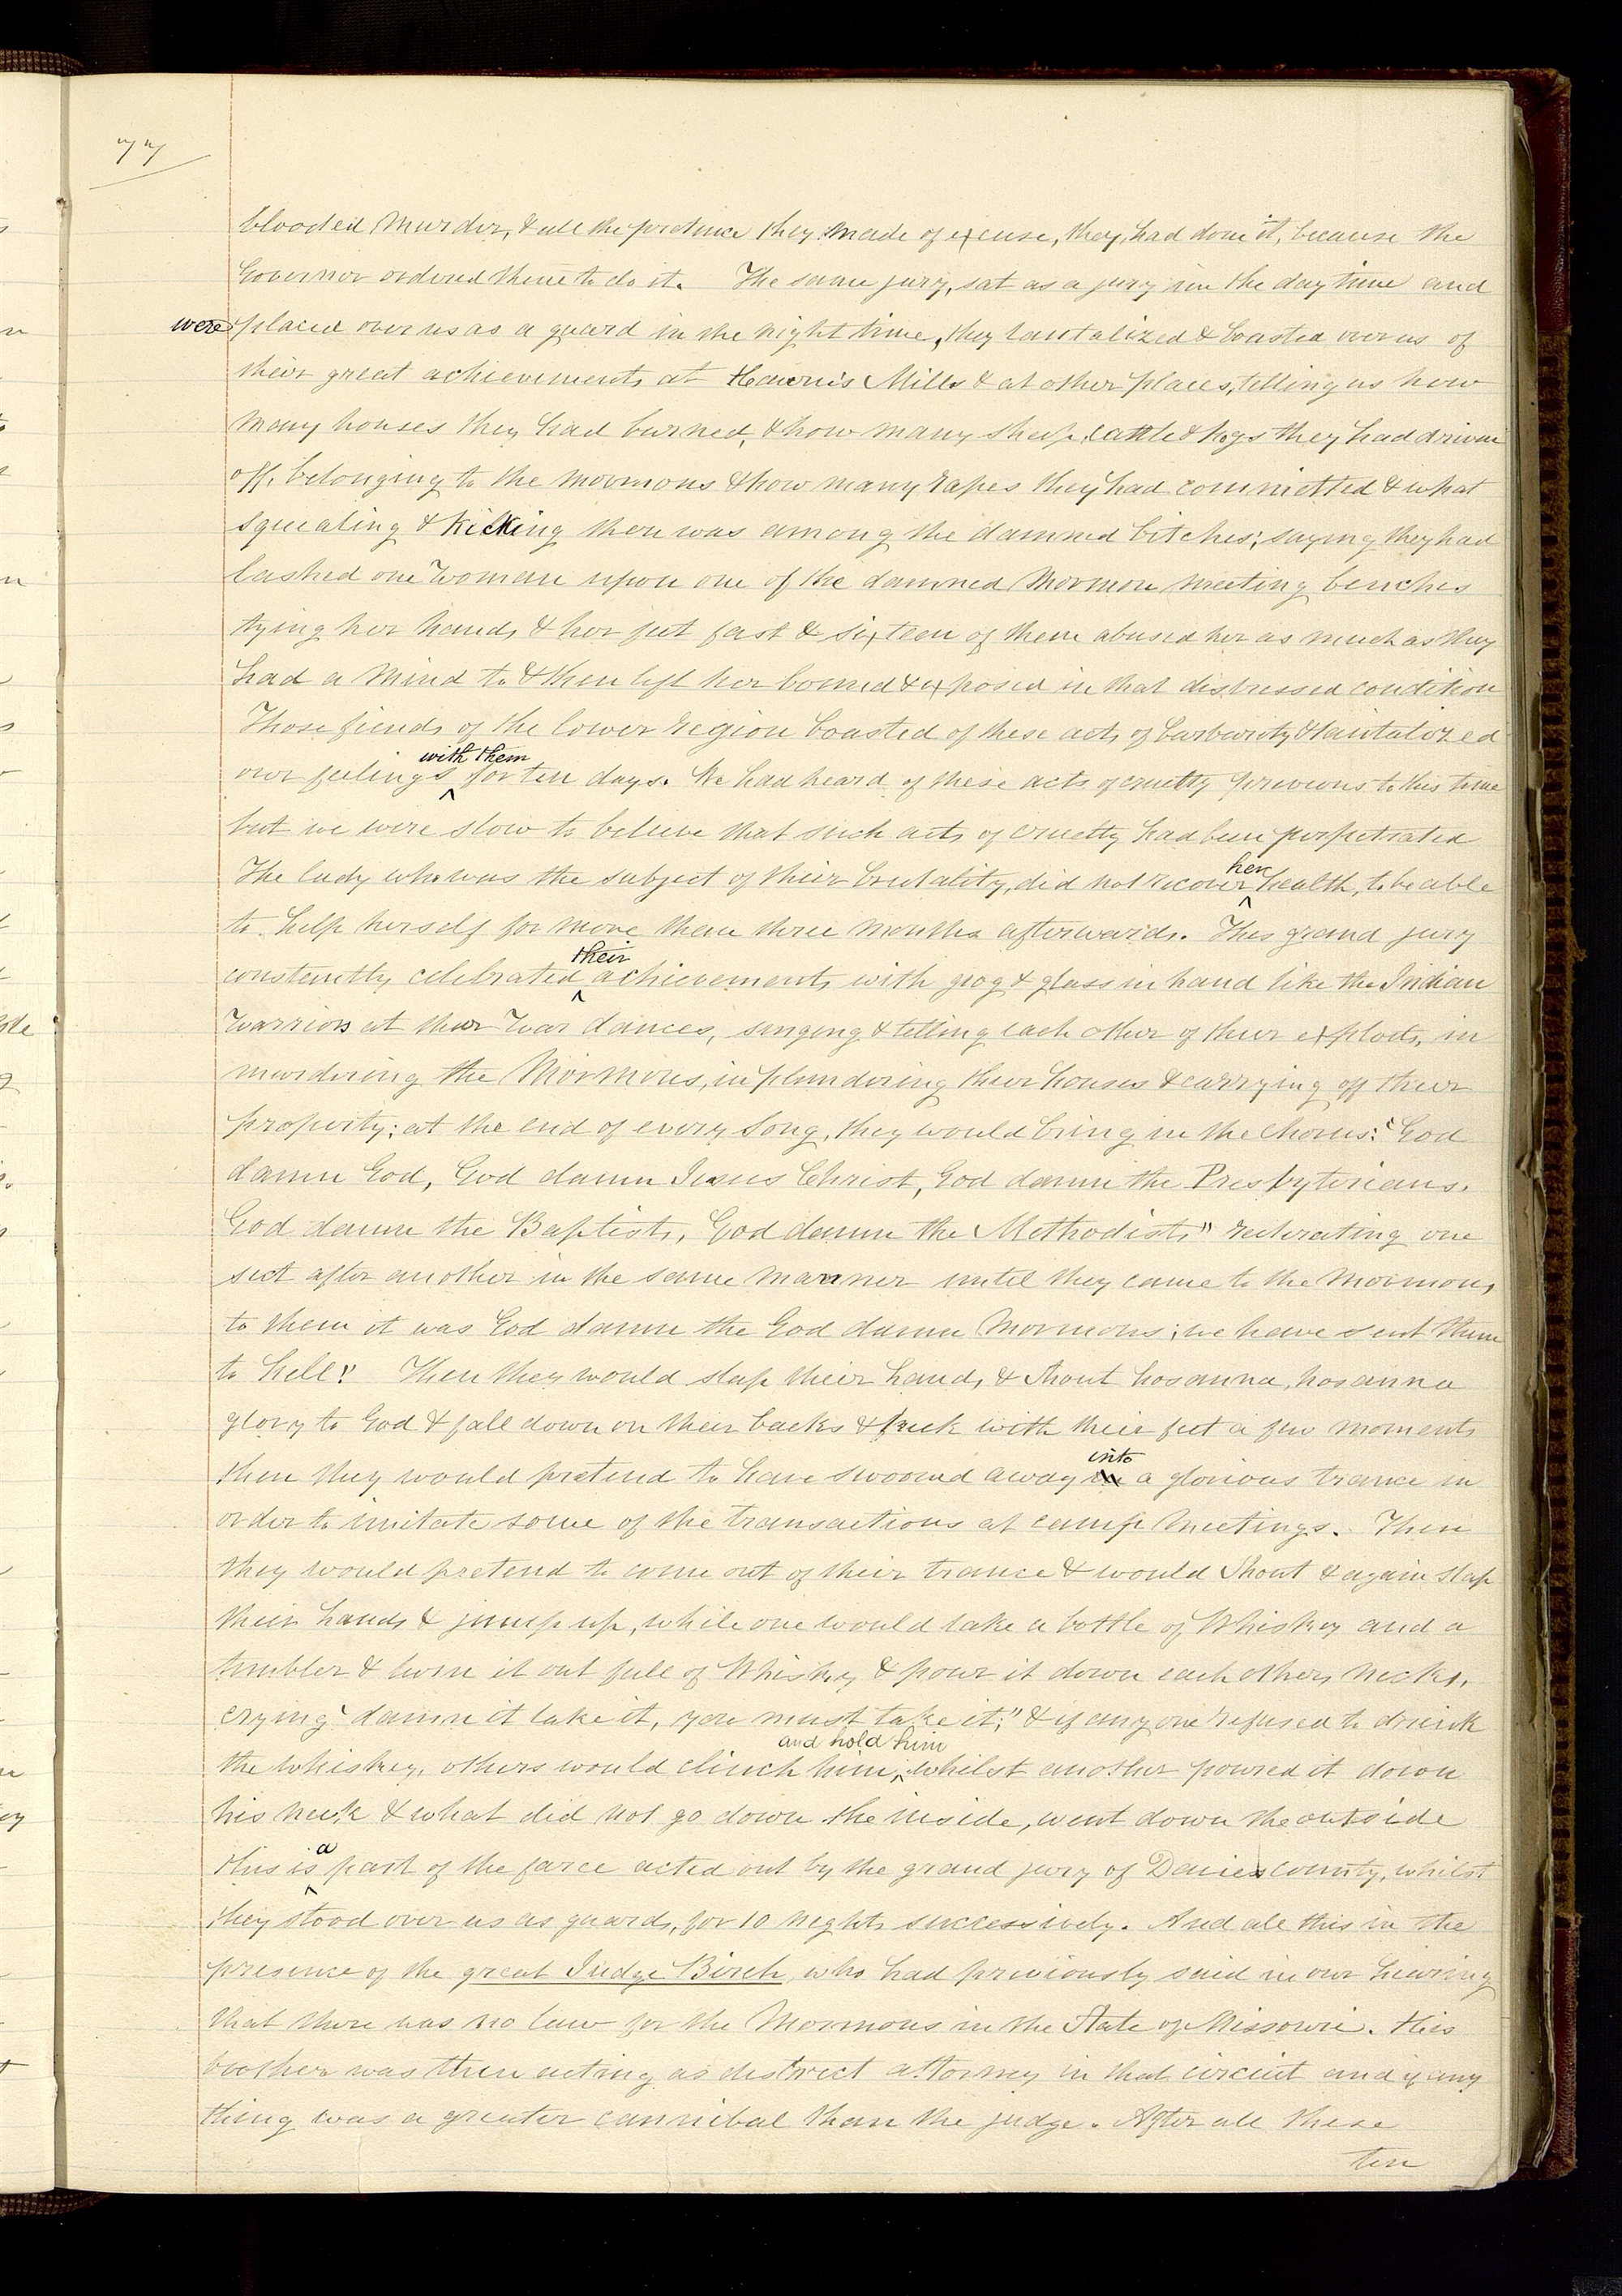 77
blooded murder, & all the pretence they made of excuse, they, had done it, because the
Governor ordered them to do it. The same jury, sat as a jury in the day time and
were placed over us as a guard in the night time, they tantalized & boasted over us of
their great achievements at Hauns Mills & at other places, telling us how
many houses they had burned, & how many sheep, cattle & hogs they had driven
off, belonging to the Mormons & how many rapes they had committed & what
squealing & kicking there was among the damned bitches; saying they had
lashed one woman upon one of the damned Mormon meeting benches
tying her hands & her feet fast & sixteen of them abused her as much as they
had a mind to & then left her bound & exposed in that distressed condition
Those fiends of the lower region boasted of these acts of barbarity & tantalized
with them
our feelings for ten days. We had heard of these acts of cruelty previous to this time
but we were slow to believe that such acts of cruelty had been perpetrated
her
The lady who was the subject of their brutality, did not recover health, to be able
to help herself for more than three months afterwards. This grand jury
their
constantly celebrated achievements with grog & glass in hand like the Indian
warriors at their war dances, singing & telling each other of their exploits, in
murdering the Mormons, in plundering their houses & carrying off their
property; at the end of every song, they would bring in the chorus: "God
damn God, God damn Jesus Christ, God damn the Presbyterians.
God damn the Baptists, God damn the Methodists" reiterating one
sect after another in the same manner until they came to the Mormons,
to them it was God damn the God damn Mormons; we have sent them
to hell". Then they would slap their hands & shout hosanna, hosanna
glory to God & fall down on their backs & kick with their feet a few moments
into
then they would pretend to have swooned away in a glorious trance in
order to imitate some of the transactions at camp meetings. Then
they would pretend to come out of their trance & would shout & again slap
their hands & jump up, while one would take a bottle of Whiskey and a
tumbler & turn it out full of Whiskey & pour it down each others necks,
crying "damn it take it, you must take it;" & if any one refused to drink
and hold him
the whiskey, others would clinch him, whilst another poured it down
his neck & what did not go down the inside, went down the outside
a
this is part of the farce acted out by the grand jury of Davies county, whilst
they stood over us as guards, for 10 nights successively. And all this in the
presence of the great Judge Birch, who had previously said in our hearing
that there was no law for the Mormons in the State of Missouri. His
brother was then acting as district attorney in that circuit and if any
thing was a greater cannibal than the judge. After all these
ten